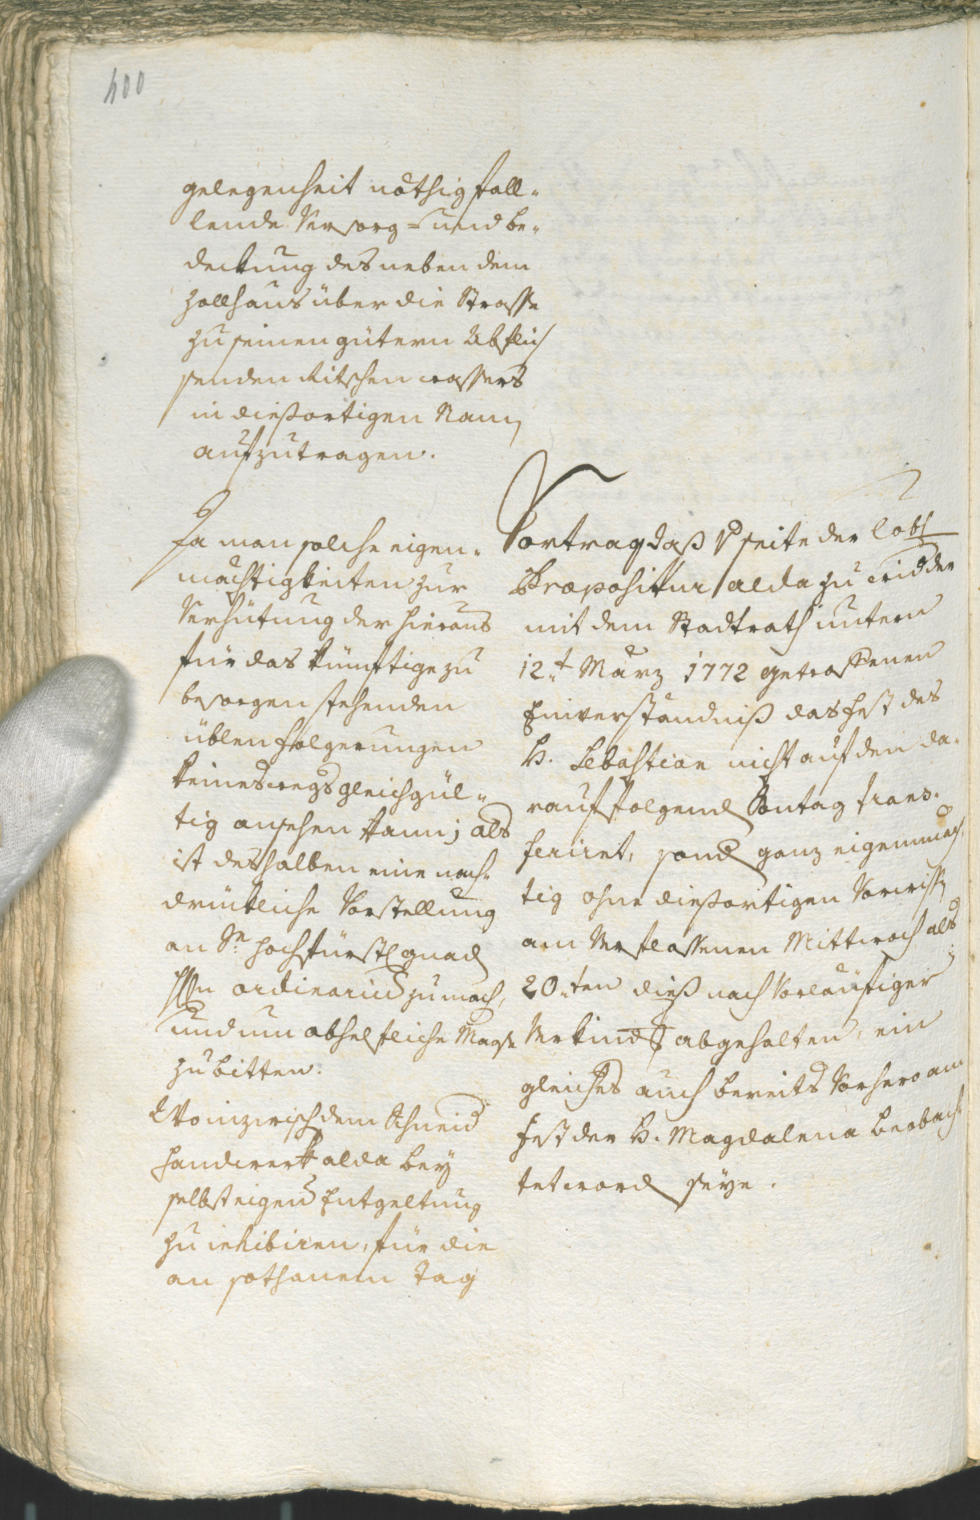 400
gelegenheit nöthig fall-
lende Versorg- und be-
deckung des neben dem
Zollhaus über die Strasse
zu seinen gütern Abflies
senden Ritschen wassers
in dießortigen Nam͂
aufzutragen.
Ja man solche eigen-
mächtigkeiten zur
Verhütung der hieraus
für das künftige zu
besorgen stehenden
üblen folgerungen
keineswegs gleichgül-
tig ansehen kann; als
ist deshalben eine nach-
drükliche Vorstellung
an Se. hochfürstl. gnad
Hn ordinarium zu mach,
und um abhelfliche Maaß
zu bitten.
Wo inzwischen dem Schneid
handwerk alda bey
selbst eigen Entgeltung
zu inhibiren, für die
an sothanem Tag
Vortrag daß seite der löbl
Præpositur alda zu wider
mit dem Stadtrath untern
12.t März 1772 getroffenen
Einverständniß das fest des
H. Sebastian nicht auf den da-
rauf folgend Sontag trans-
feriret, sond ganz eigenmäch-
tig ohne dießortigen Vorwiss
am Verflossenen Mittwoch als
20.ten dieß nach Vorläufiger
Verkind abgehalten, ein
gleiches auch bereits Vorhero am
fest der H. Magdalena beobach-
tet word seye.